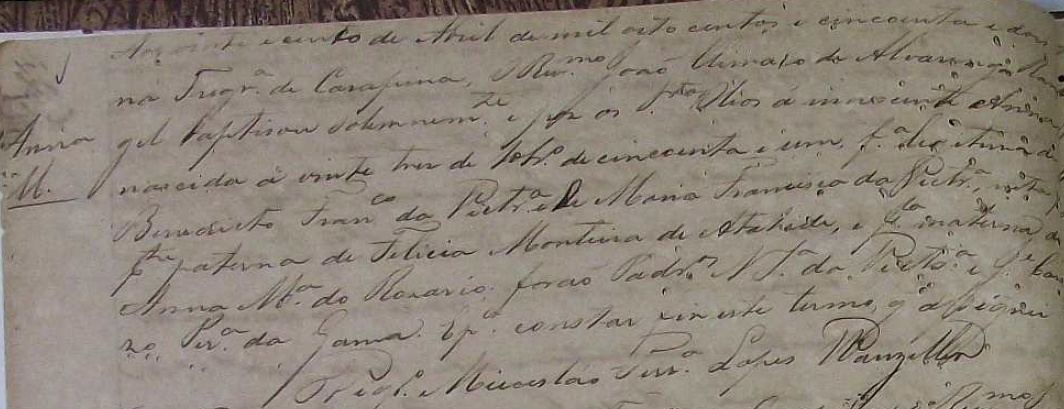 Aos vinte e cinco de Abril de mil oito centos e cincoenta e dois
na Fregr.ª de Carapina, o Rev.mo João Climaco de Alvarenga Ran
Anna gel baptisou solemnem.te e poz os S.tos Olios á innocente Anna
M. nascida á vinte tres de 10br.º de cincoenta e um, f.ª legitima de
Benedicto Fran.co da Victr.ª e de Maria Francisca da Victr.ª, neta p
p.te paterna de Felicia Monteira de Atahide, e p.la materna de
Anna M.ª do Rozario: forão Padr.os N. S.ª da Victo.ª e
Per.ª da Gama. E p.ª constar fiz este termo, q assignei
Vigr.º Miceslão Ferr.ª Lopes Wanzeller